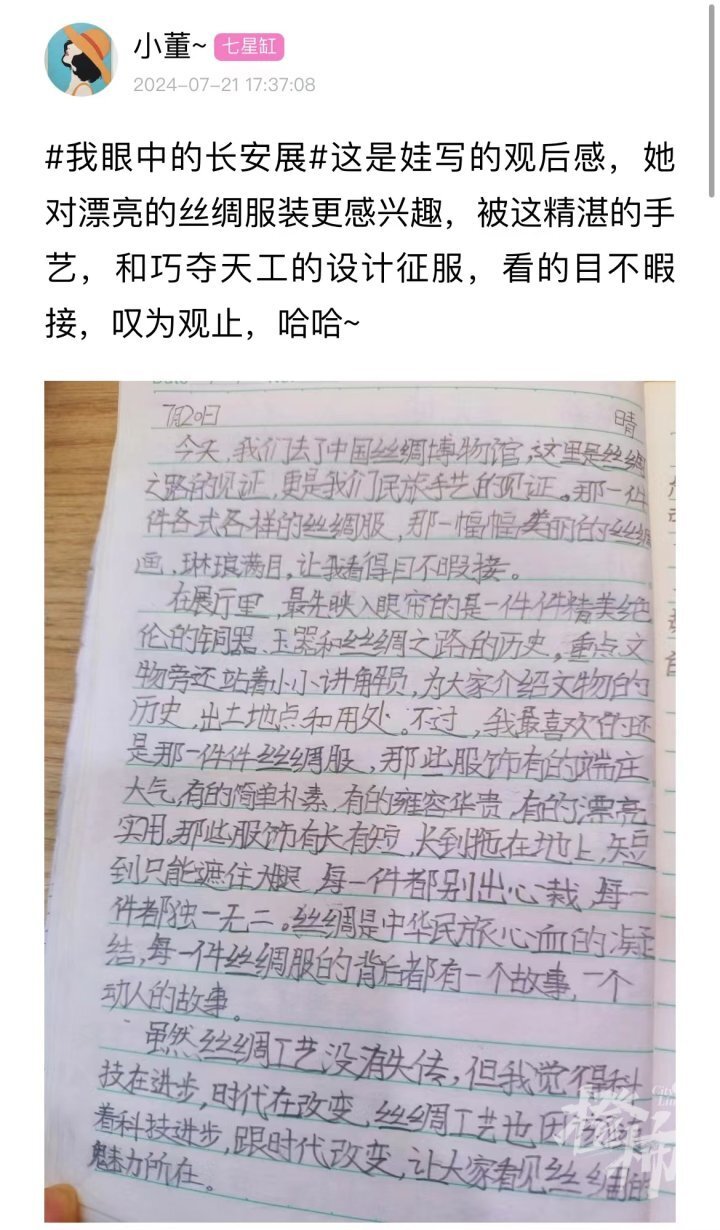 小董~ 七星缸
2024-07-21 17:37:08
#我眼中的长安展#这是娃写的观后感，她
对漂亮的丝绸服装更感兴趣，被这精湛的手
艺，和巧夺天工的设计征服，看的目不暇
接，叹为观止，哈哈~
7月20日 晴
今天，我们去了中国丝绸博物馆，这里是丝绸
之路的见证，更是我们民族手艺的见证。那一件
件各式各样的丝绸服，那一幅幅美丽的丝绸
画，琳琅满目，让我看得目不暇接。
在展厅里，最先映入眼帘的是一件件精美绝
伦的铜器、玉器和丝绸之路的历史，重点文
物旁还站着小小讲解员，为大家介绍文物的
历史，出土地点和用处。不过，我最喜欢的还
是那一件件丝绸服，那些服饰有的端庄
大气，有的简单朴素，有的雍容华贵，有的漂亮
实用，那些服饰有长有短，长到拖在地上，短
到只能遮住大腿，每一件都别出心裁，每一
件都独一无二。丝绸是中华民族心血的凝
结，每一件丝绸服的背后都有一个故事，一个
动人的故事。
虽然丝绸工艺没有失传，但我觉得科
技在进步，时代在改变，丝绸工艺也因
着科技进步，跟时代改变，让大家看见丝绸的
魅力所在。